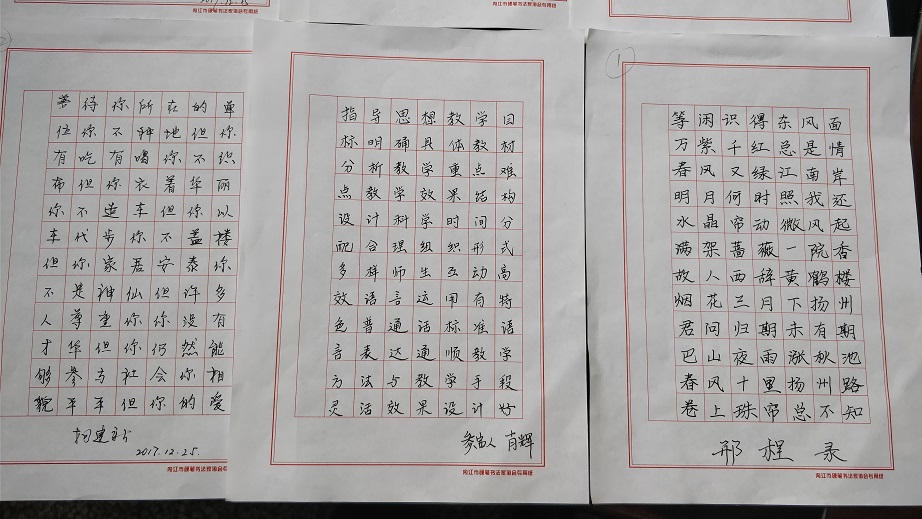 2017.12.25
内江市硬笔书法家协会专用纸
善待你所在的单
位你不种地但你
有吃有喝你不织
布但你衣着华丽
你不造车但你以
车代步你不盖楼
但你家居安泰你
不是神仙但许多
人尊重你你没有
才华但你仍然能
够参与社会你相
貌平平但你的爱
2017.12.25.
指导思想教学目
标明确具体教材
分析教学重点难
点教学效果结构
设计科学时间分
配合理组织形式
多样师生互动高
效语言运用有特
色普通话标准语
言表达通顺教学
方法与教学手段
灵活效果设计好
肖辉
内江市硬笔书法家协会专用纸
1
等闲识得东风面
万紫千红总是情
春风又绿江南岸
明月何时照我还
水晶帘动微风起
满架蔷薇一院香
故人西辞黄鹤楼
烟花三月下扬州
君问归期未有期
巴山夜雨涨秋池
春风十里扬州路
卷上珠帘总不知
邢程录
内江市硬笔书法家协会专用纸